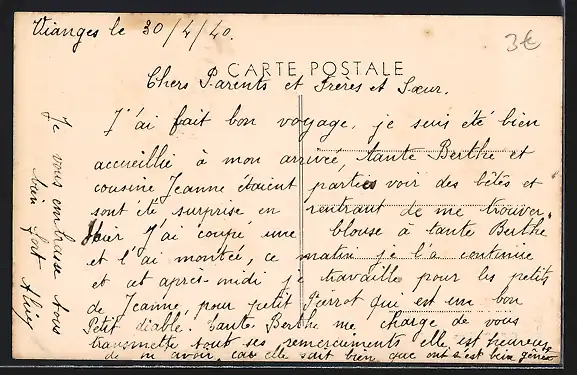 Vianges le 30/4/40.
3€
CARTE POSTALE
Chers Parents et Frères et Sœur.
J'ai fait bon voyage, je suis été bien
accueillie à mon arrivée, tante Berthe et
cousine Jeanne étaient parties voir des bêtes et
sont été surprise en rentrant de me trouver.
Hier J'ai coupé une blouse à tante Berthe
et l'ai montée, ce matin je l'a continue
et cet après-midi je travaille pour les petits
de Jeanne, pour petit Pierrot qui est un bon
Petit diable. Tante Berthe me charge de vous
transmettre tout ses remerciements elle est heureuse
de m'avoir, car elle sait bien que ont s'est bien gêner
Je vous embrasse tous
bien fort